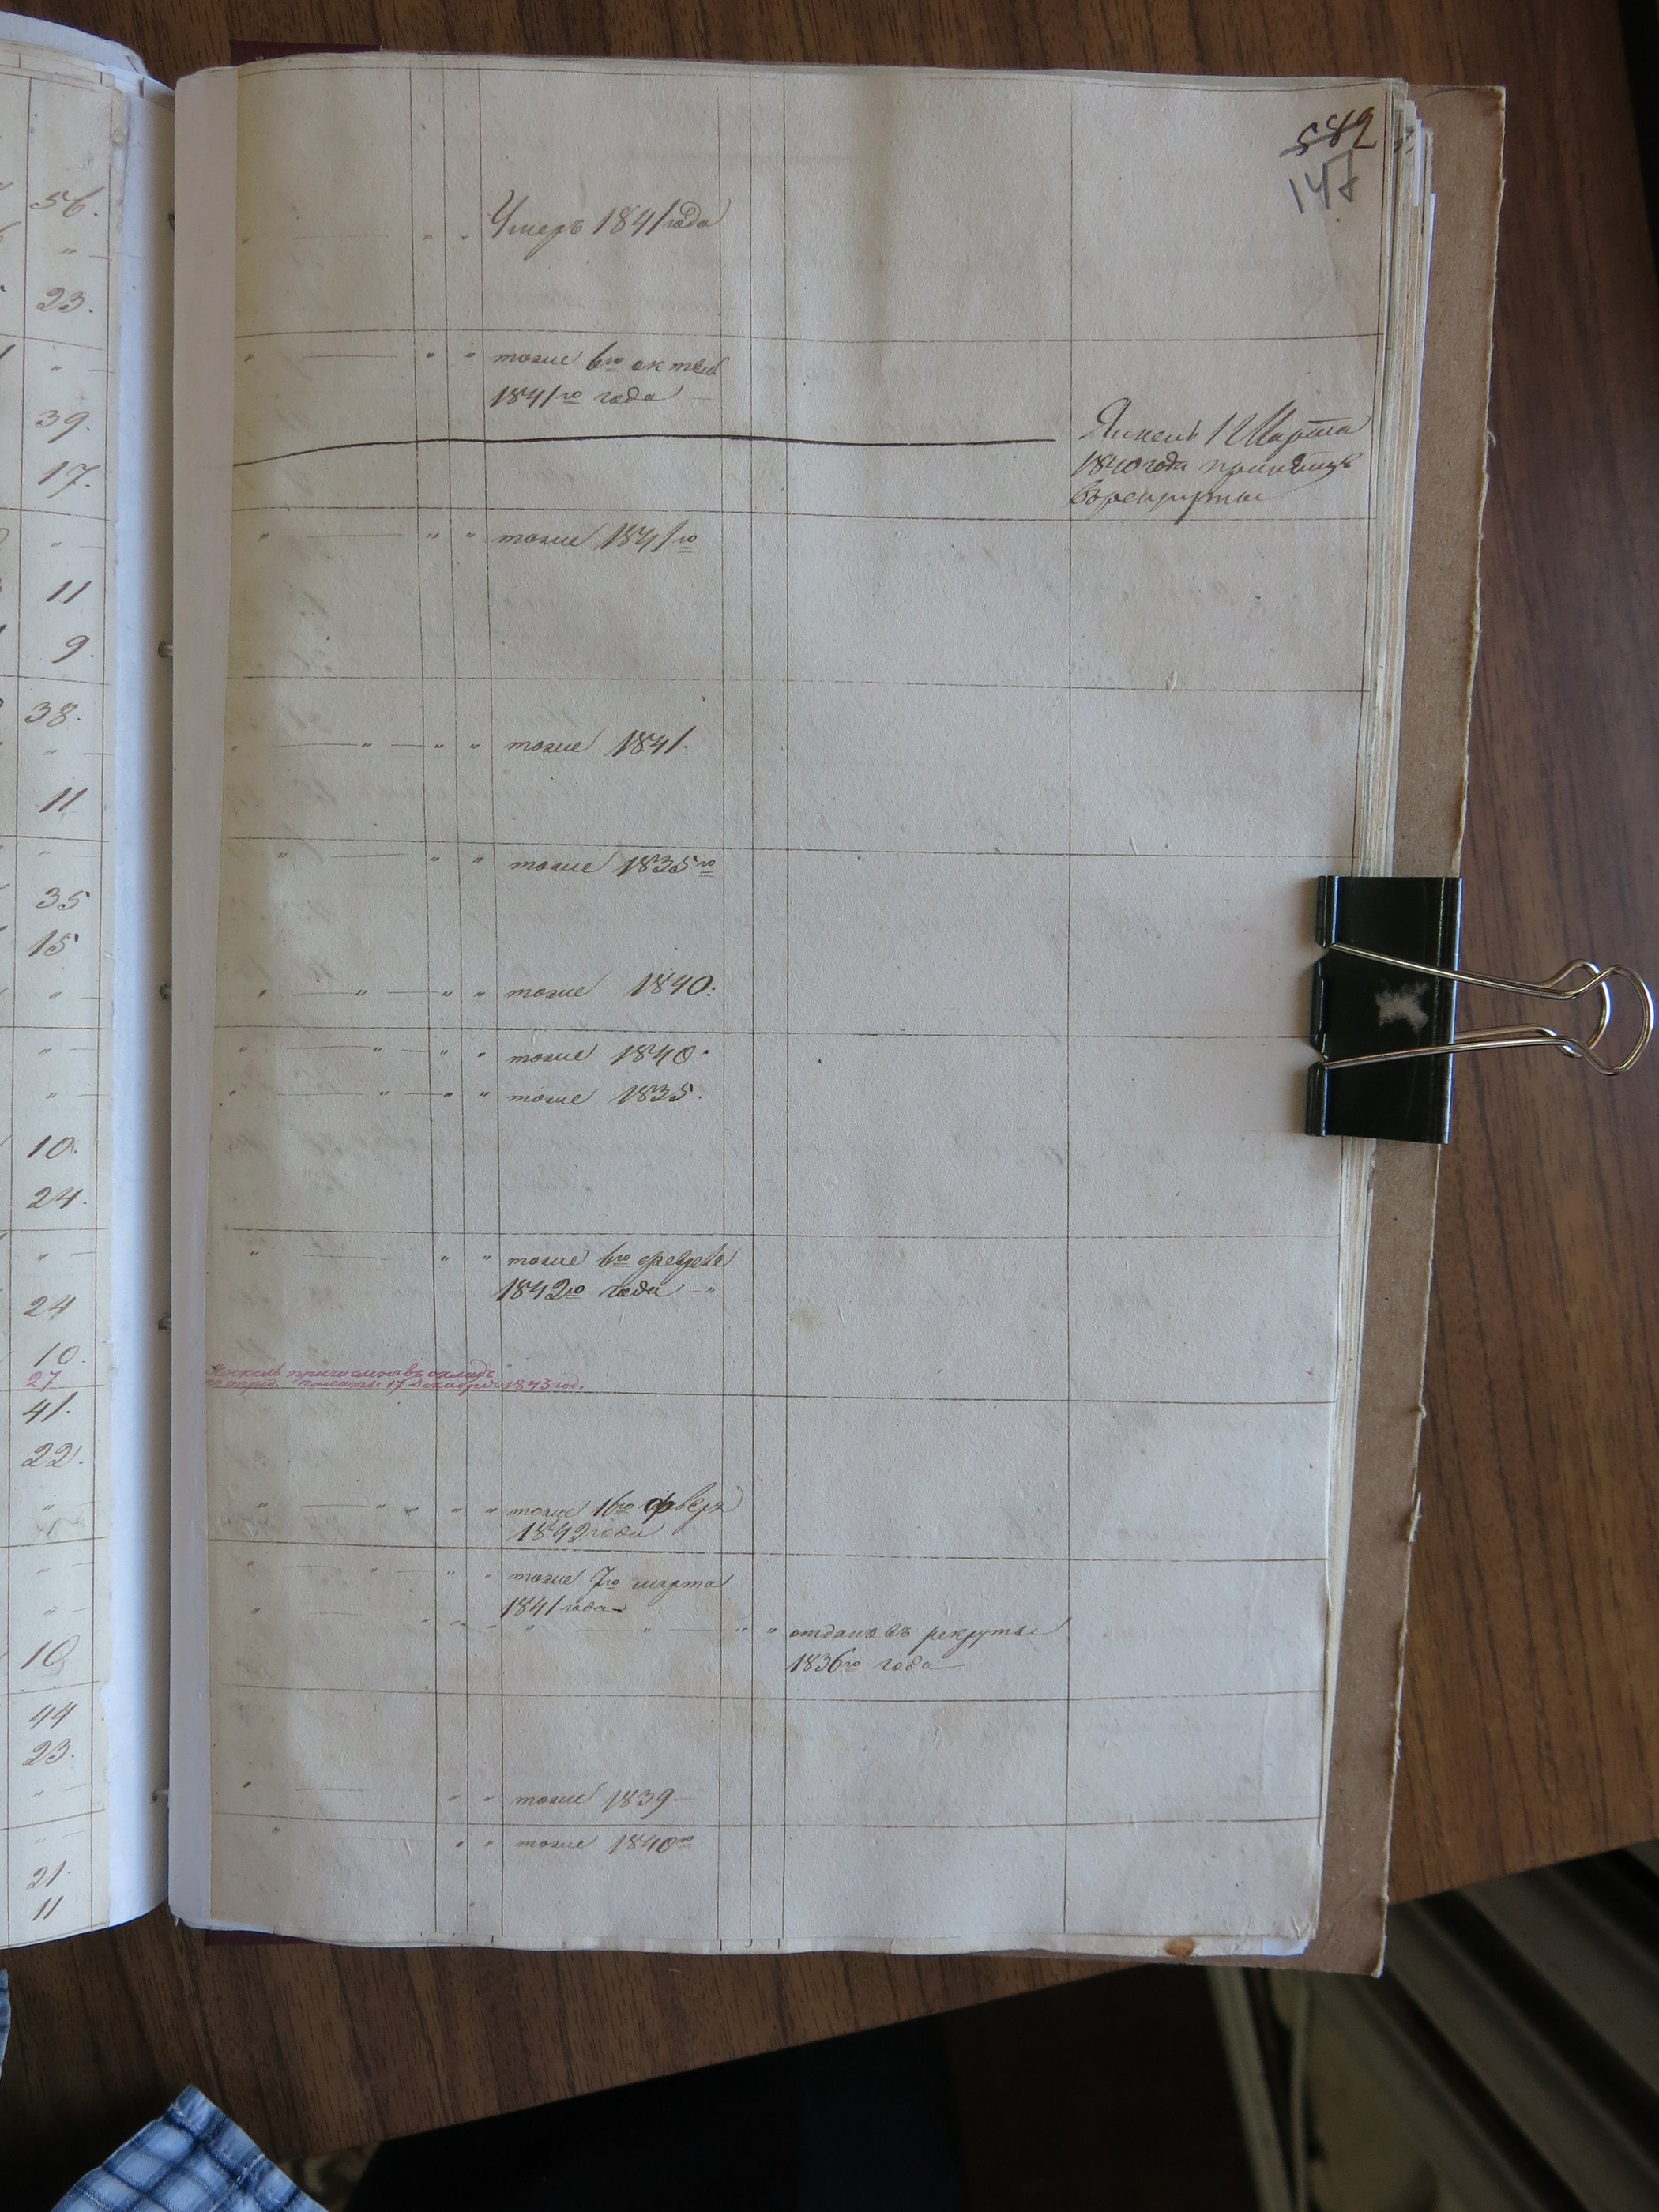 582
147
56.
"
23.
"
39.
17.
"
11
9.
38.
"
11
"
35
15
"
"
"
10.
24.
"
24
10.
27
41.
22.
"
"
"
10
44
23.
"
"
21.
11
" — " " Умеръ 1841 года
" — " " тоже 6го октяб
1841го года —
Янкель 12 Марта
1840 года принятъ
въ рекруты
" — " " тоже 1841го
" — " — " " тоже 1841.
" — " " тоже 1835го
" — " — " " тоже 1840.
" — " — " " тоже 1840.
" — " — " " тоже 1835.
" — " " тоже 6го февра
1842го года — "
причисленъ въ окладъ
палаты 17 Декабря 1843 год.
" — " " " " тоже 16го февра
1842 года
" — " — " " тоже 7го марта
1841 года
" " " " " — " — " " отданъ въ рекруты
1836го года —
" — " " тоже 1839 —
" — " " тоже 1840го